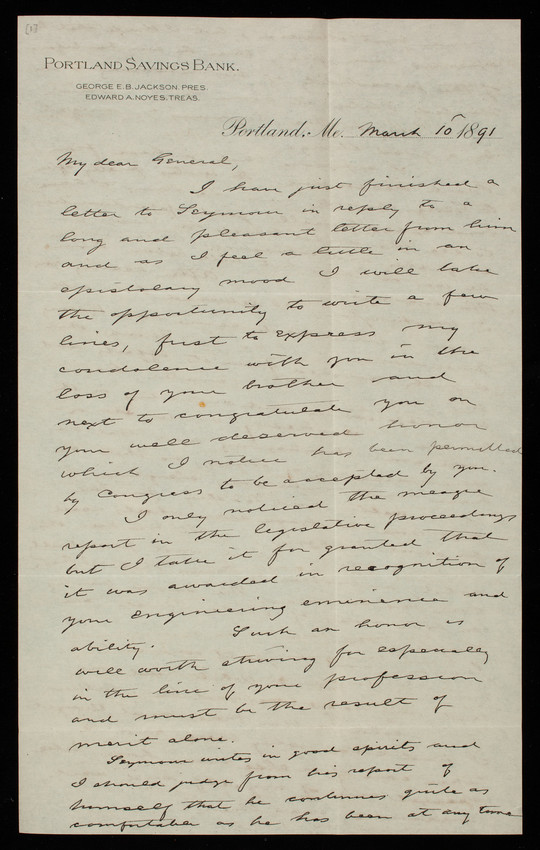 [1]
PORTLAND SAVINGS BANK.
GEORGE E. B. JACKSON, PRES.
EDWARD A. NOYES, TREAS.
Portland, Me. March 10 1891
My dear General,
I have just finished a
letter to Seymour in reply to a
long and pleasant letter from him
and as I feel a little in an
epistolary mood I will take
the opportunity to write a few
lines, first to express my
condolence with you in the
loss of your brother and
next to congratulate you on
your well deserved honor
which I notice has been permitted
by Congress to be accepted by you.
I only noticed the meagre
report in the legislative proceedings
but I take it for granted that
it was awarded in recognition of
your engineering eminence and
ability. Such an honor is
well worth striving for especially
in the line of your profession
and must be the result of
merit alone.
Seymour writes in good spirits and
I should judge from his report of
himself that he continues quite as
comfortable as he has been at any time